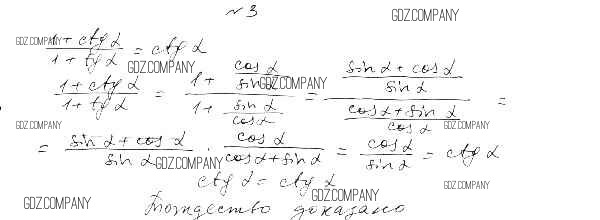 № 3
GDZ.COMPANY
GDZ.COMPANY
(1 + ctg α)/(1 + tg α) = ctg α
GDZ.COMPANY
(1 + ctg α)/(1 + tg α) = (1 + cos α/sin α)/(1 + sin α/cos α) = ((sin α + cos α)/sin α)/((cos α + sin α)/cos α) =
GDZ.COMPANY
GDZ.COMPANY
GDZ.COMPANY
= (sin α + cos α)/sin α · cos α/(cos α + sin α) = cos α/sin α = ctg α
GDZ.COMPANY
ctg α = ctg α
GDZ.COMPANY
GDZ.COMPANY
GDZ.COMPANY
Тождество доказано